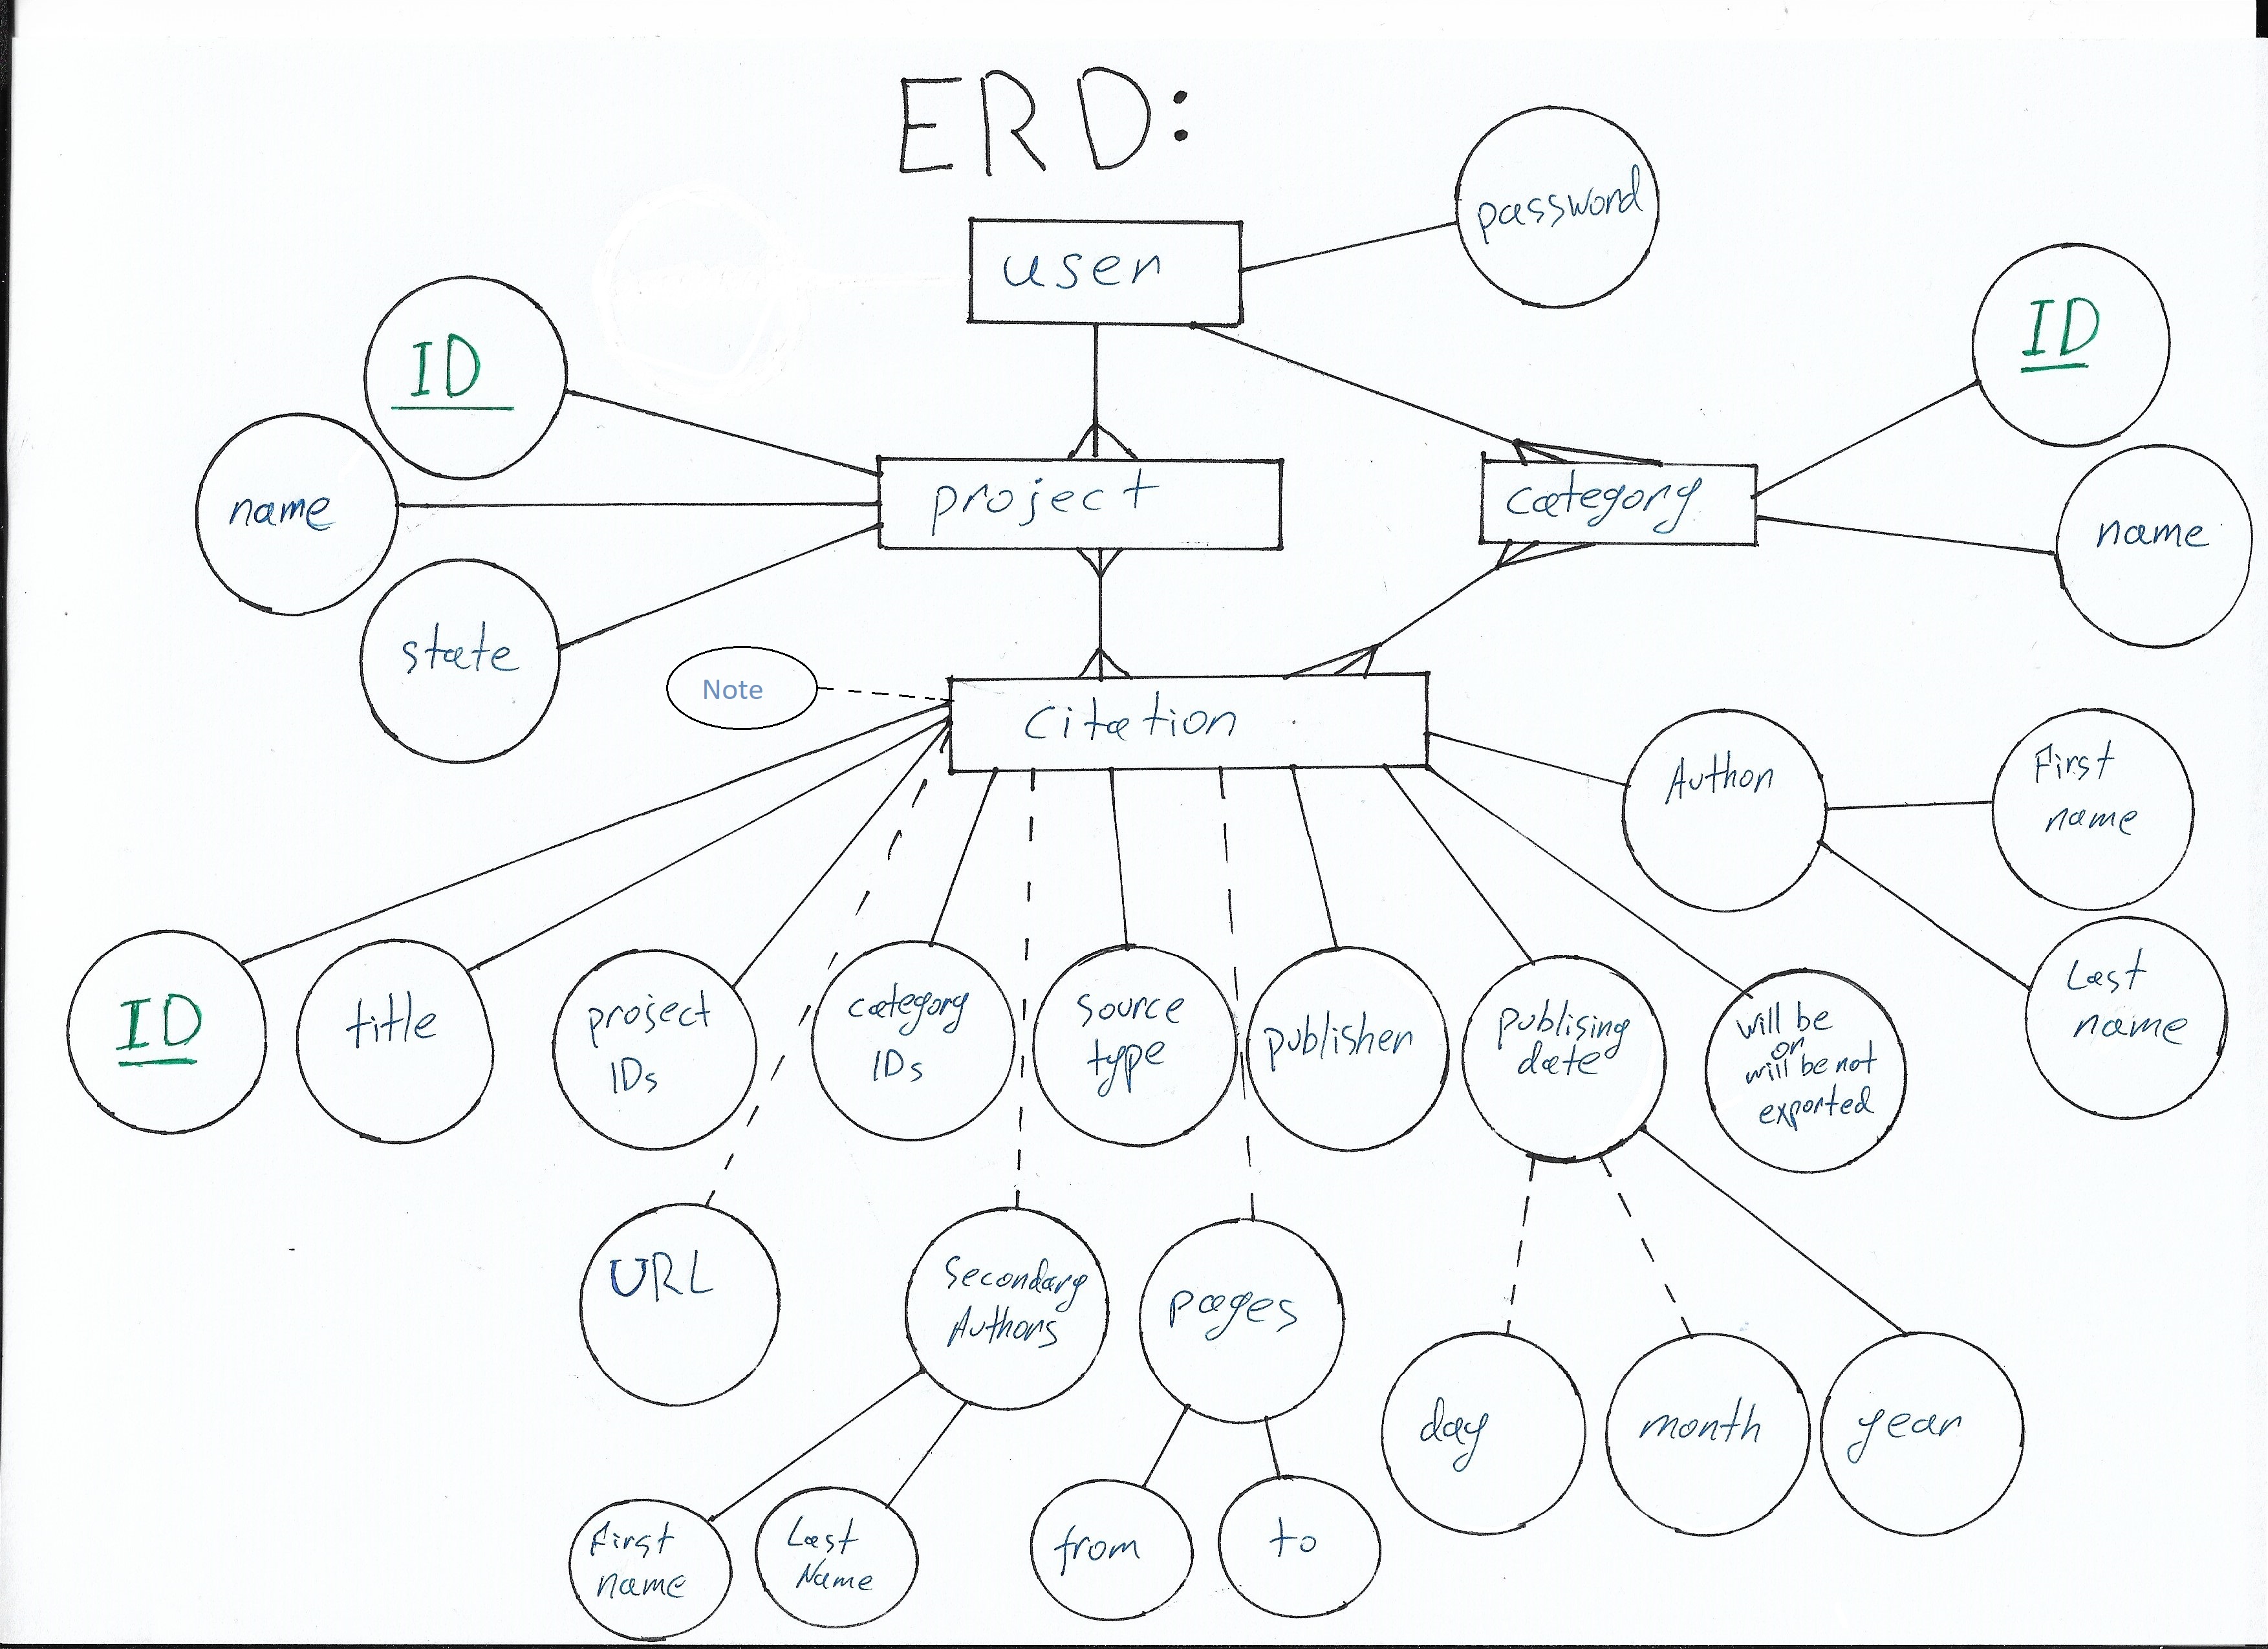 ERD:
password
user
ID
ID
name
project
category
name
state
Note
citation
Author
First
name
Last
name
ID
title
project
IDs
category
IDs
source
type
publisher
publising
date
will be
or
will be not
exported
URL
Secondary
Authors
pages
day
month
year
First
name
Last
Name
from
to